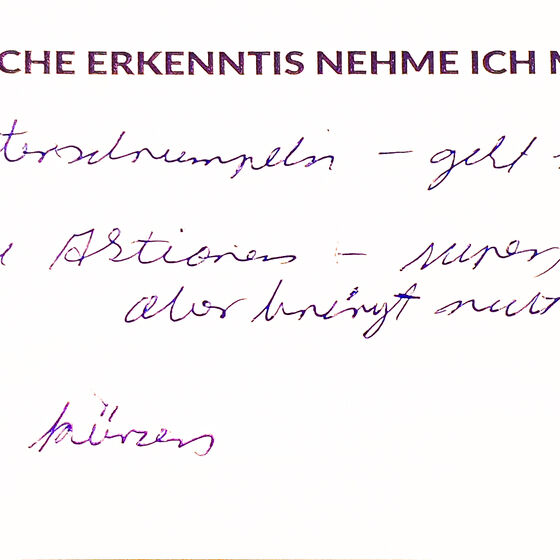 CHE ERKENNTIS NEHME ICH
terschrumpeln – geht
Aktionen – super,
aber bringt
kürzen